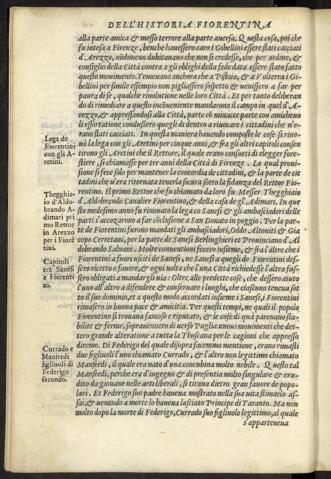 DELL'HISTORIA FIORENTINA
alla parte amica & messo terrore alla parte auersa. Questa cosa, poi che
fu intesa a Firenze, benche hauessero caro i Gibellini essere stati cacciati
d'Arezzo, nōdimeno dubitauano che non si credesse, che per ordine, &
consiglio della Città contra a gli oblighi della fede data essere stato fatto
questo mouimento. Temeuano anchora che a Pistoia, & a Volterra i Gi-
bellini per simile essempio non pigliassero sospetto & uenissero a far per
paura di se, qualche riuolutione nelle loro Città. Et per tanto deliberan
do di rimediare a questo incōueniente mandarono il campo in quel d'A-
rezzo, & appressandosi alla Città, parte cō minacce parte con amicheuo
le essortatione condussero quegli di dentro a riuocare i cittadini che n'e-
rano stati cacciati. In questa maniera hauendo composte le cose si rino-
uò la lega con gli Aretini per cinque anni, & fra gli altri capitoli consen
tirono gli Aretini che il Rettore, il quale erano consueti di elegger fore-
stiere, si chiamasse per tre anni della Città di Firenze. La qual proui-
sione si fece solo per mantener la concordia de cittadini, & la parte de cit
tadini che u'era ritornata tenuta sicura sotto la fidanza del Rettor Fio-
rentino. Il primo Rettor che fu chiamato da loro fu Messer Thegghiaio
d'Aldobrando Caualier Fiorentino, & della casa de gli Adimari. In que
sto medesimo anno fu rinouata la lega co Sanesi & gli ambasciadori delle
parti s'accozzarono a far cōclusione a San Donato in poggio. Per la par-
te de Fiorentini furono mandati gli ambasciadori, Oddo Altouiti & Gia
copo Cerretani, per la parte de Sanesi Berlinghieri et Prouinciano d'Al
dobrando Saluani. Molte conuentioni fecero insieme, & fra l'altre che i
Fiorentini a fuori usciti de Sanesi, ne Sanesi a quegli de Fiorentini des-
sero ricetto o fauore, & ogni uolta che l'una Città richiedesse l'altra fus-
sero obligati a mandar gli aiuti. Oltre alle predette cose, che dessero aiuto
l'uno all'altro a difendere & conseruare i luoghi, che ciascuno teneua sot
to il suo dominio, et a questo modo accordati insieme i Sanesi, i Fiorentini
rimasero in buona pace & amicitia. Per questi tempi, ne quali il popolo
Fiorentino si trouaua famoso & riputato, & le cose di quà pareuano sta-
bilite & ferme, soprauennero di uerso Puglia nuoui mouimenti che det-
tero grande alteratione a tutta la Thoscana per le cagioni che appresso
diremo. Di Federigo del quale disopra facemmo mentione, erano rimasti
due figliuoli l'uno chiamato Currado, & l'altro non legitimo chiamato
Manfredi, il quale era nato d'una concubina molto nobile. Questo tal
Manfredi, perche era d'ingegno & di presentia molto singulare & eru-
dito da giouane nelle arti liberali, si tiraua dietro gran fauore de popo-
lari. Et Federigo suo padre haueua mostrato nella sua uita stimarlo as-
sai, & uenendo a morte lo haueua lasciato Principe di Taranto. Ma non
molto dopo la morte di Federigo, Currado suo figliuolo legittimo, al quale
s'apparteneua
Lega de
Fiorentini
con gli A-
retini.
Thegghia
io d'Aldo-
brando A-
dimari pri
mo Rettor
in Arezzo
per i Fiorē
tini.
Capitoli
tra Sanesi
& Fiorenti
ni.
Currado &
Manfredi
figliuoli di
Federigo
secondo.